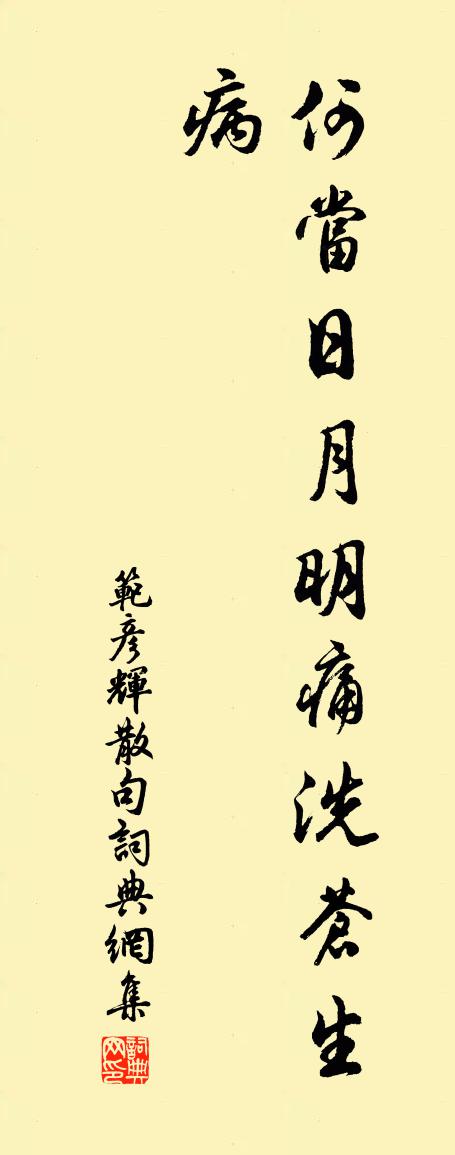 何當日月明痛洗蒼生
病
範彥輝散句詞典網集
詞典
网印